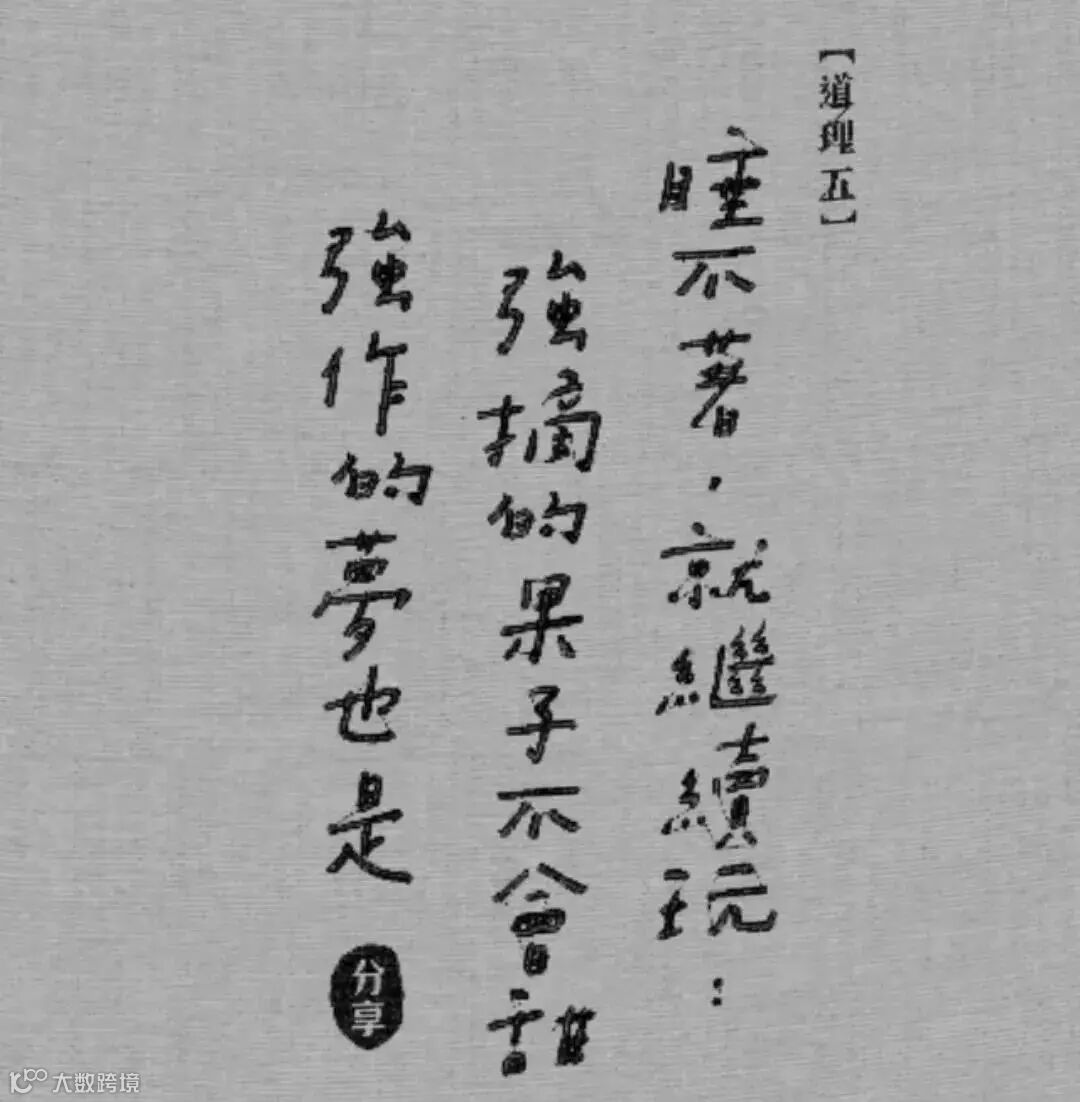 【道理五】
睡不著，就繼續玩：
強摘的果子不會甜
強作的夢也是
分享
大数跨境